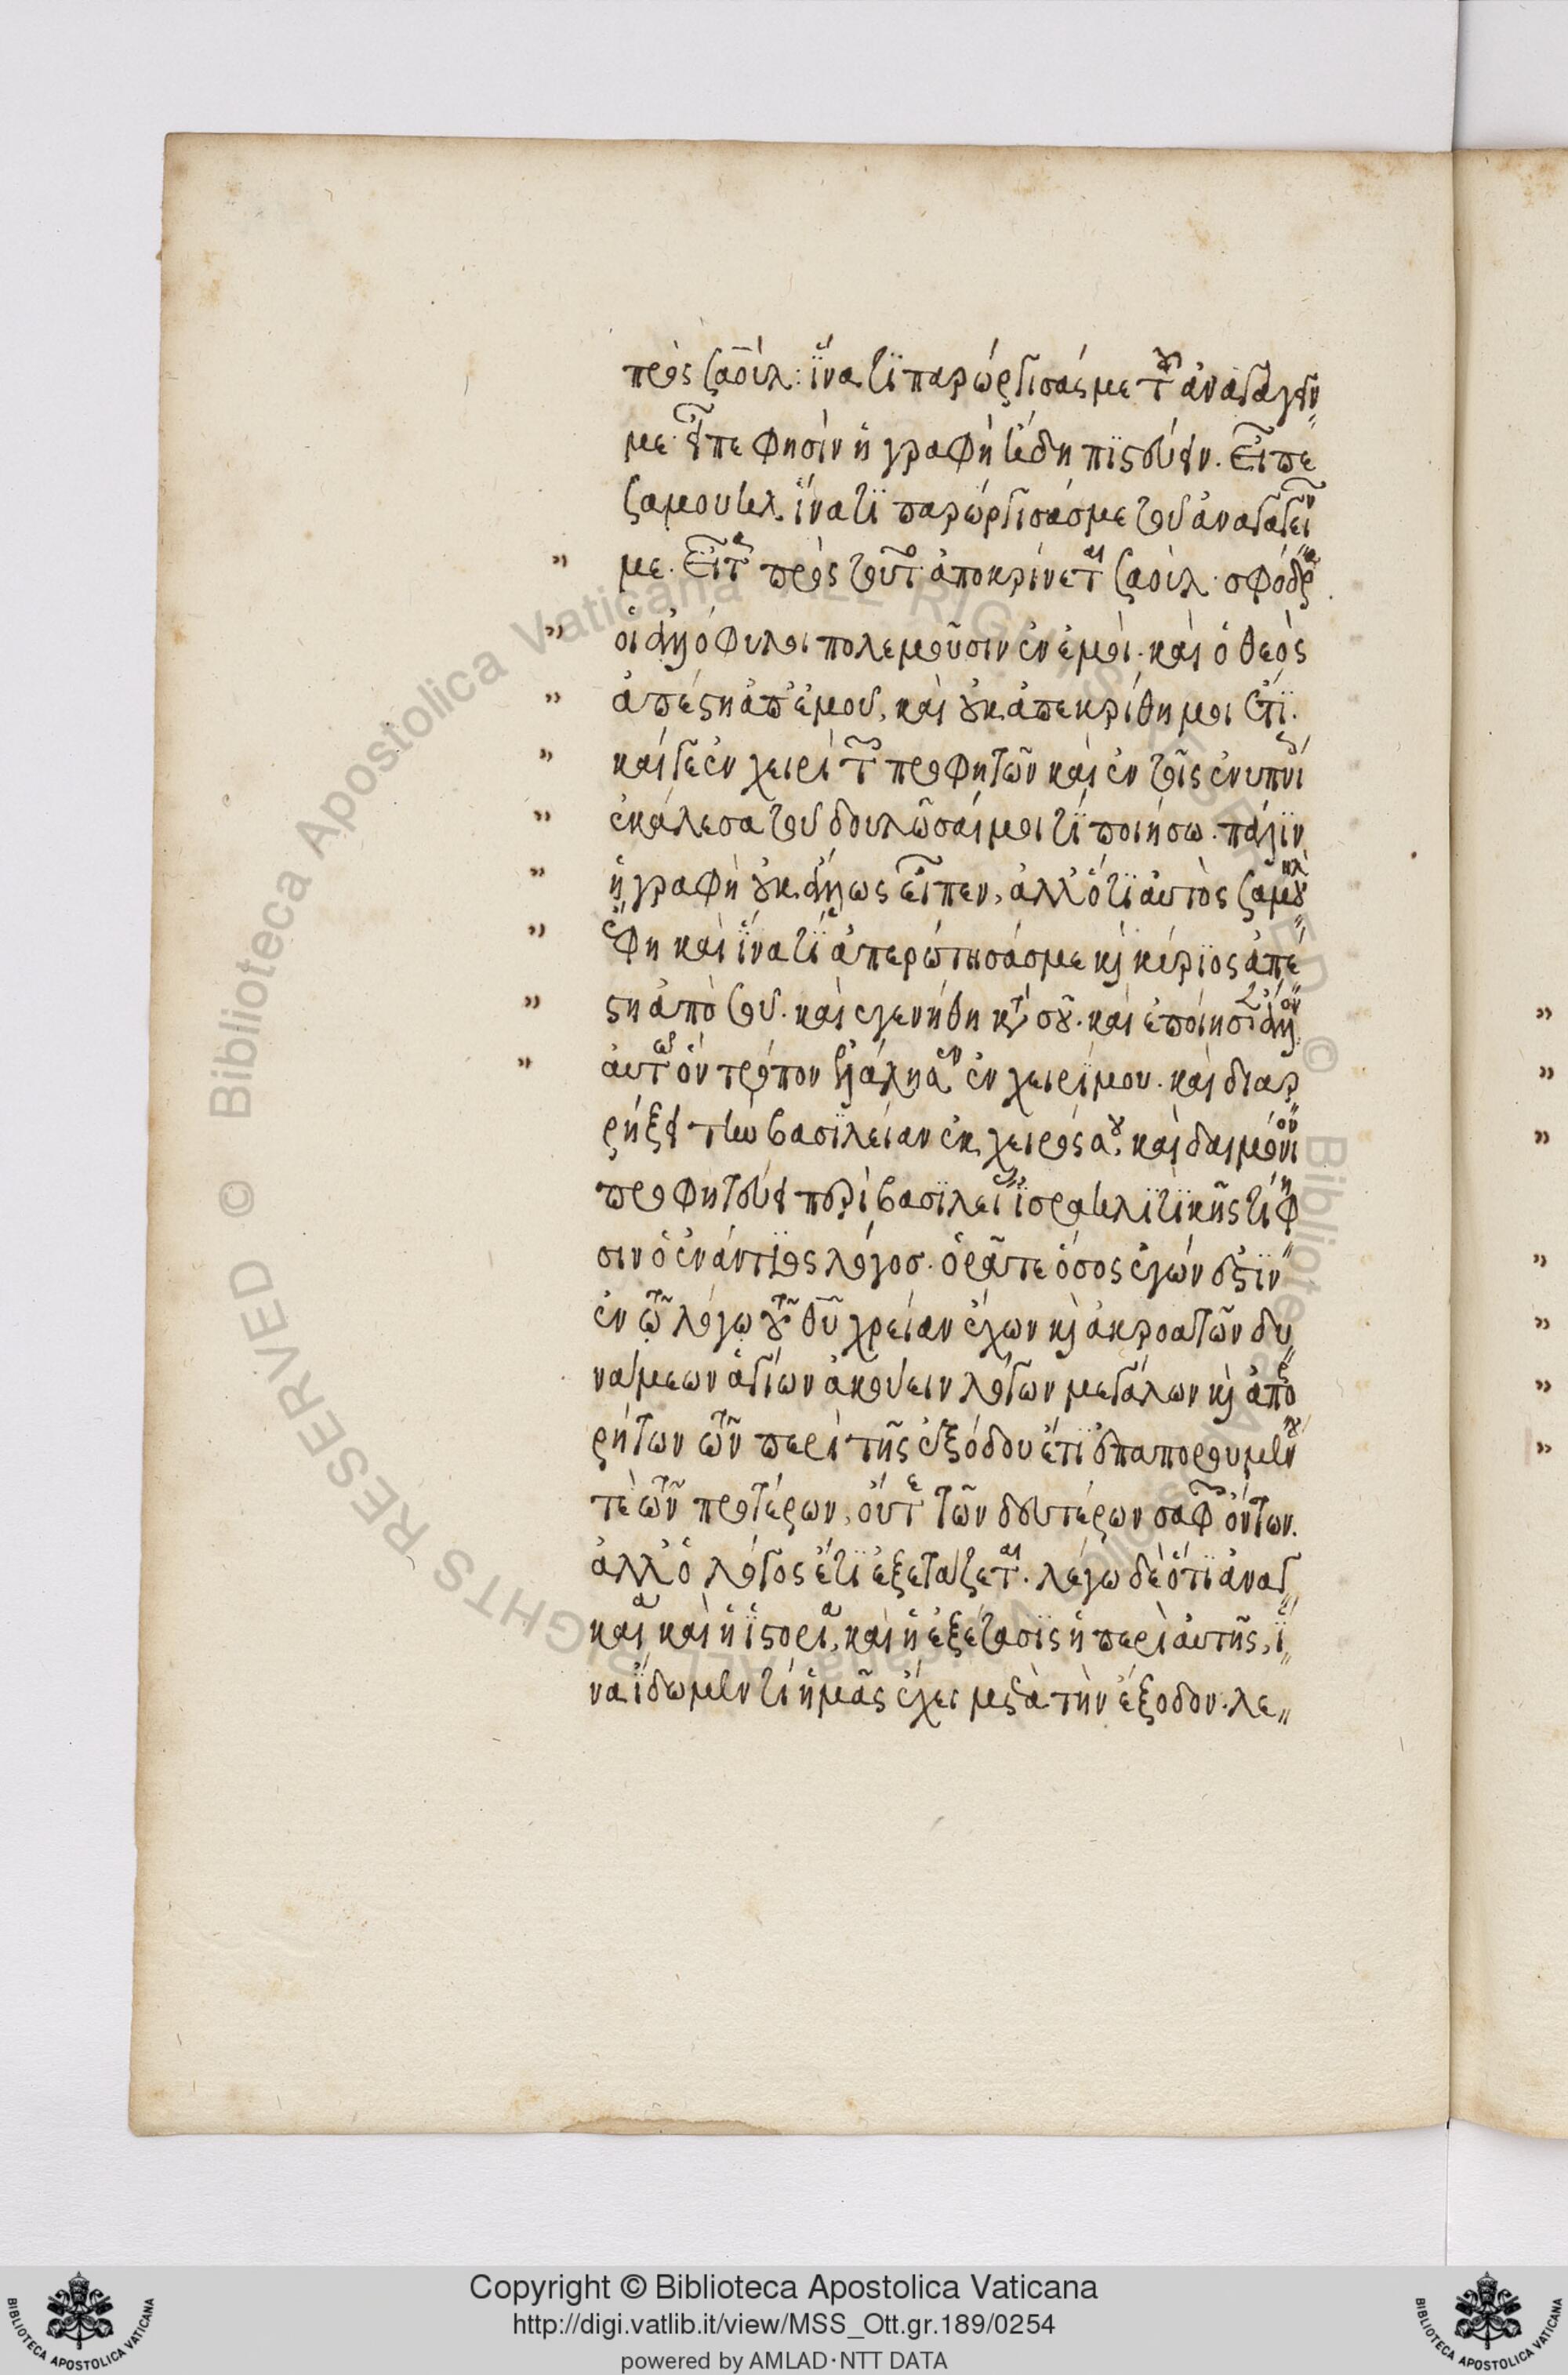 πρὸς σαούλ: ἵνα τί παρώργισάς με τοῦ ἀναγαγεῖν
με· εἶπε φησὶν ἡ γραφὴ ᾗ δεῖ πιστεύειν. Εἶπε
σαμουὴλ ἵνα τί παρώργισάσμε τοῦ ἀναγαγεῖν
" με. Εἶτα πρὸς τοῦτο ἀποκρίνεται σαούλ· σφόδρα
" οἱ ἀλλόφυλοι πολεμοῦσιν ἐν ἐμοὶ· καὶ ὁ θεὸς
" ἀπέστη ἀπ' ἐμοῦ, καὶ οὐκ ἀπεκρίθη μοι ἔτι.
" καίγε ἐν χειρὶ τῶν προφητῶν καὶ ἐν τοῖς ἐνυπνίοις
" ἐκάλεσα τοῦ δουλῶσαί μοι τί ποιήσω. πάλιν
" ἡ γραφὴ οὐκ ἄλλως εἶπεν, ἀλλ' ὅτι αὐτὸς σαμουὴλ
" ἔφη καὶ ἵνα τί ἀπερώτησάσμε κὶ κύριος ἀπέ
" στη ἀπὸ σοῦ. καὶ ἐγενήθη κατὰ σοῦ. καὶ ἐποίησεν ἄλλον
" αὐτῷ ὃν τρόπον ἐλάλησεν ἐν χειρί μου. καὶ διαρ
ρήξει τὴν βασιλείαν ἐκ χειρός σου, καὶ δαιμόνιον
προφητεύει περὶ βασιλείας ἰσραηλιτικῆς τί φη
σιν ὁ ἐναντίος λόγοσ· ὁρᾶτε ὅσος ἀγών ἐστιν
ἐν τῷ λόγῳ τοῦ θυ χρείαν ἔχων κὶ ἀκροατῶν δυ
ναμεων ἁγίων ἀκούειν λόγων μεγάλων κὶ ἀπο
ρήτων τῶν περὶ τῆς ἐξόδου ἔτι ἐπαπορουμένων
τὲ τῶν προτέρων, οὔτε τῶν δευτέρων σαφῶν ὄντων.
ἀλλ' ὁ λόγος ἔτι ἐξετάζεται. λέγω δὲ ὅτι ἀναγ
καία καὶ ἡ ἱστορία, καὶ ἡ ἐξέτασις ἡ περὶ αὐτῆς, ἵ
να ἴδωμεν τί ἡμᾶς ἔχει μετὰ τὴν ἔξοδον. λε
Copyright © Biblioteca Apostolica Vaticana
http://digi.vatlib.it/view/MSS_Ott.gr.189/0254
powered by AMLAD·NTT DATA